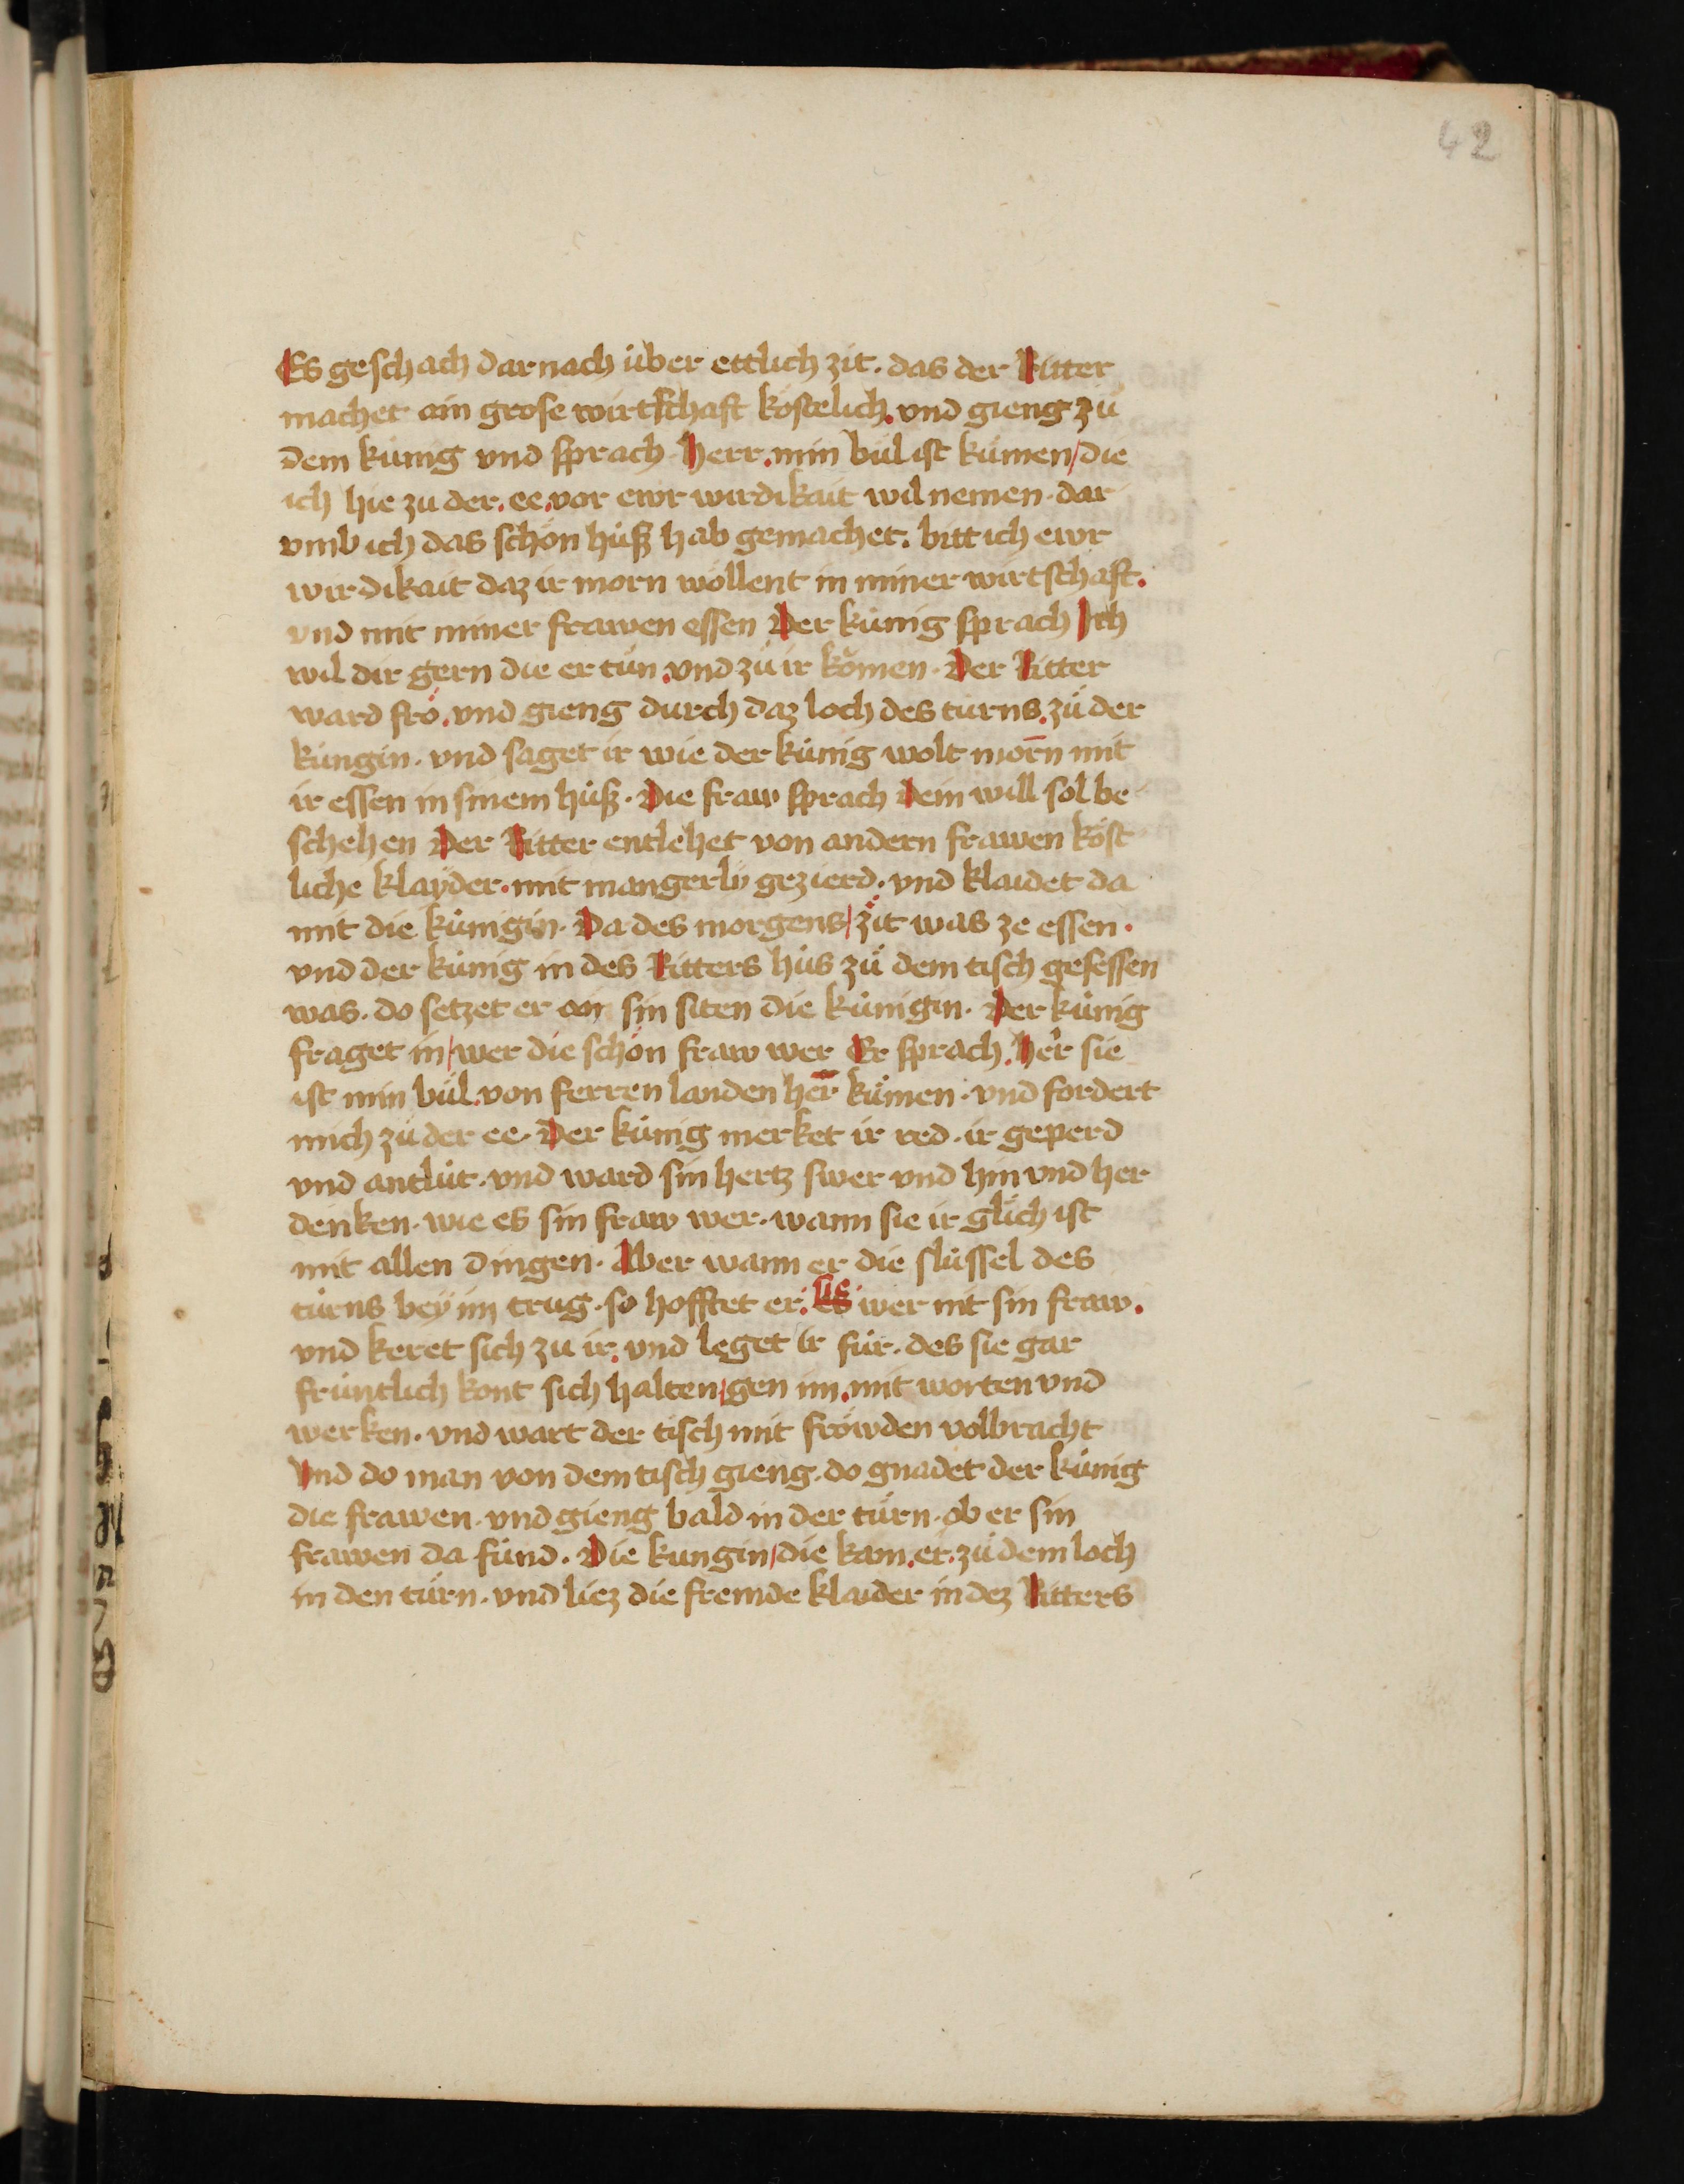 42
Es geschach darnach über ettlich zit. das der Ritter
machet ain grose wirtschaft kostelich. vnd gieng zů
dem künig vnd sprach. Herr. min bůl ist kůmen/ die
ich hie zu der. ee. vor ewr wirdikait wil nemen. dar
vmb ich das schön hůß hab gemachet. bitt ich ewr
wirdikait daz ir morn wöllent in miner wirtschaft.
vnd mit miner frawen essen Der künig sprach Ich
wil dir gern die er tůn. vnd zů ir kömen. Der Ritter
ward fro. vnd gieng durch daz loch des turns. zů der
küngin. vnd saget ir wie der künig wolt morn mit
ir essen in sinem hůß. Die fraw sprach Dein will sol be
schehen Der Ritter entlehet von andern frawen köst
liche klayder. mit mangerlÿ gezierd. vnd klaidet da
mit die künigin. Da des morgens/ zit was ze essen.
vnd der künig in des Ritters hůs zů dem tisch gesessen
was. do setzet er an sin siten die künigin. Der künig
fraget in/ wer die schön fraw wer Er sprach. Her sie
ist min bůl. von ferren landen her kůmen. vnd fordert
mich zů der ee. Der künig merket ir red. ir geperd
vnd antlüt. vnd ward sin hertz swer vnd hin vnd her
denken. wie es sin fraw wer. wann sie ir glich ist
mit allen dingen. Aber wann er die slüssel des
türns beÿ im trug. so hofftet er. sie es wer nit sin fraw.
vnd keret sich zu ir. vnd leget ir für. des sie gar
früntlich kont sich halten/ gen im. mit worten vnd
werken. vnd wart der tisch mit fröwden volbracht
Vnd do man von dem tisch gieng. do gnadet der künig
die frawen. vnd gieng bald in der türn. ob er sin
frawen da fünd. Die kungin/ die kam. et. zů dem loch
in den türn. vnd liez die fremde klaider in dez Ritters